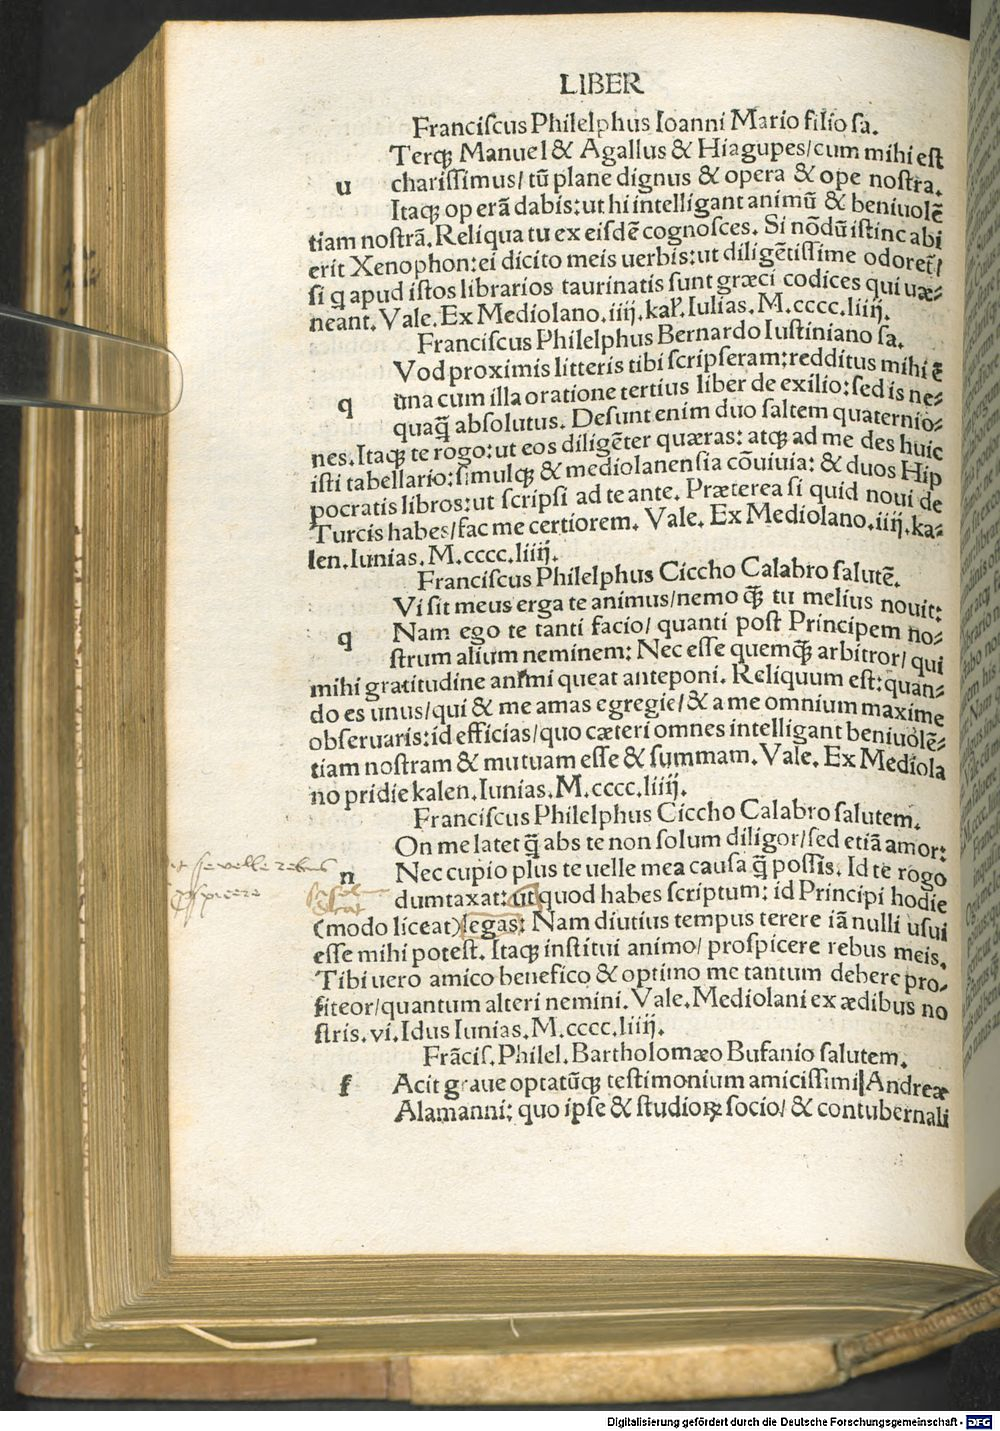 LIBER
Franciſcus Philelphus Ioanni Mario filio ſa.
u Terqꝫ Manuel & Agallus & Hiagupes/cum mihi eſt
chariſſimus/ tū plane dignus & opera & ope noſtra.
Itaqꝫ operā dabis: ut hi intelligant animū & beniuolē
tiam noſtrā. Reliqua tu ex eiſdē cognoſces. Si nōdū iſtinc abi
erit Xenophon: ei dicito meis uerbis: ut diligētiſſime odoret̄/
ſi q̄ apud iſtos librarios taurinatis ſunt græci codices qui uæ⸗
neant. Vale. Ex Mediolano. iiij. kal̓. Iulias. M. cccc. liiij.
Franciſcus Philelphus Bernardo Iuſtiniano ſa.
q Vod proximis litteris tibi ſcripſeram: redditus mihi ē
una cum illa oratione tertius liber de exilio: ſed is ne⸗
quaq̄ abſolutus. Deſunt enim duo ſaltem quaternio⸗
nes. Itaqꝫ te rogo: ut eos diligēter quæras: atqꝫ ad me des huic
iſti tabellario: ſimulqꝫ & mediolanenſia cōuiuia: & duos Hip
pocratis libros: ut ſcripſi ad te ante. Præterea ſi quid noui de
Turcis habes/fac me certiorem. Vale. Ex Mediolano. iiij. ka⸗
len. Iunias. M. cccc. liiij.
Franciſcus Philelphus Ciccho Calabro ſalutē.
q Vi ſit meus erga te animus/nemo qꝫ̄ tu melius nouit:
Nam ego te tanti facio/ quanti poſt Principem no⸗
ſtrum alium neminem: Nec eſſe quemqꝫ̄ arbitror/ qui
mihi gratitudine animi queat anteponi. Reliquum eſt: quan⸗
do es unus/qui & me amas egregie/& a me omnium maxime
obſeruaris: id efficias/quo cæteri omnes intelligant beniuolē⸗
tiam noſtram & mutuam eſſe & ſummam. Vale. Ex Mediola
no pridie kalen. Iunias. M. cccc. liiij.
Franciſcus Philelphus Ciccho Calabro ſalutem.
n On me latet q̄ abs te non ſolum diligor/ſed etiā amor:
Nec cupio plus te uelle mea cauſa q̄ poſſis. Id te rogo
dumtaxat: ut quod habes ſcriptum: id Principi hodie
(modo liceat)legas: Nam diutius tempus terere iā nulli uſui
eſſe mihi poteſt. Itaqꝫ inſtitui animo/ proſpicere rebus meis.
Tibi uero amico benefico & optimo me tantum debere pro⸗
fiteor/quantum alteri nemini. Vale. Mediolani ex ædibus no
ſtris. vi. Idus Iunias. M. cccc. liiij.
Frāciſ. Philel. Bartholomæo Bufanio ſalutem.
f Acit graue optatūqꝫ teſtimonium amiciſſimi Andreæ
Alamanni: quo ipſe & ſtudioꝝ ſocio/ & contubernali
ſe velle rebus
Digitalisierung gefördert durch die Deutsche Forschungsgemeinschaft - DFG